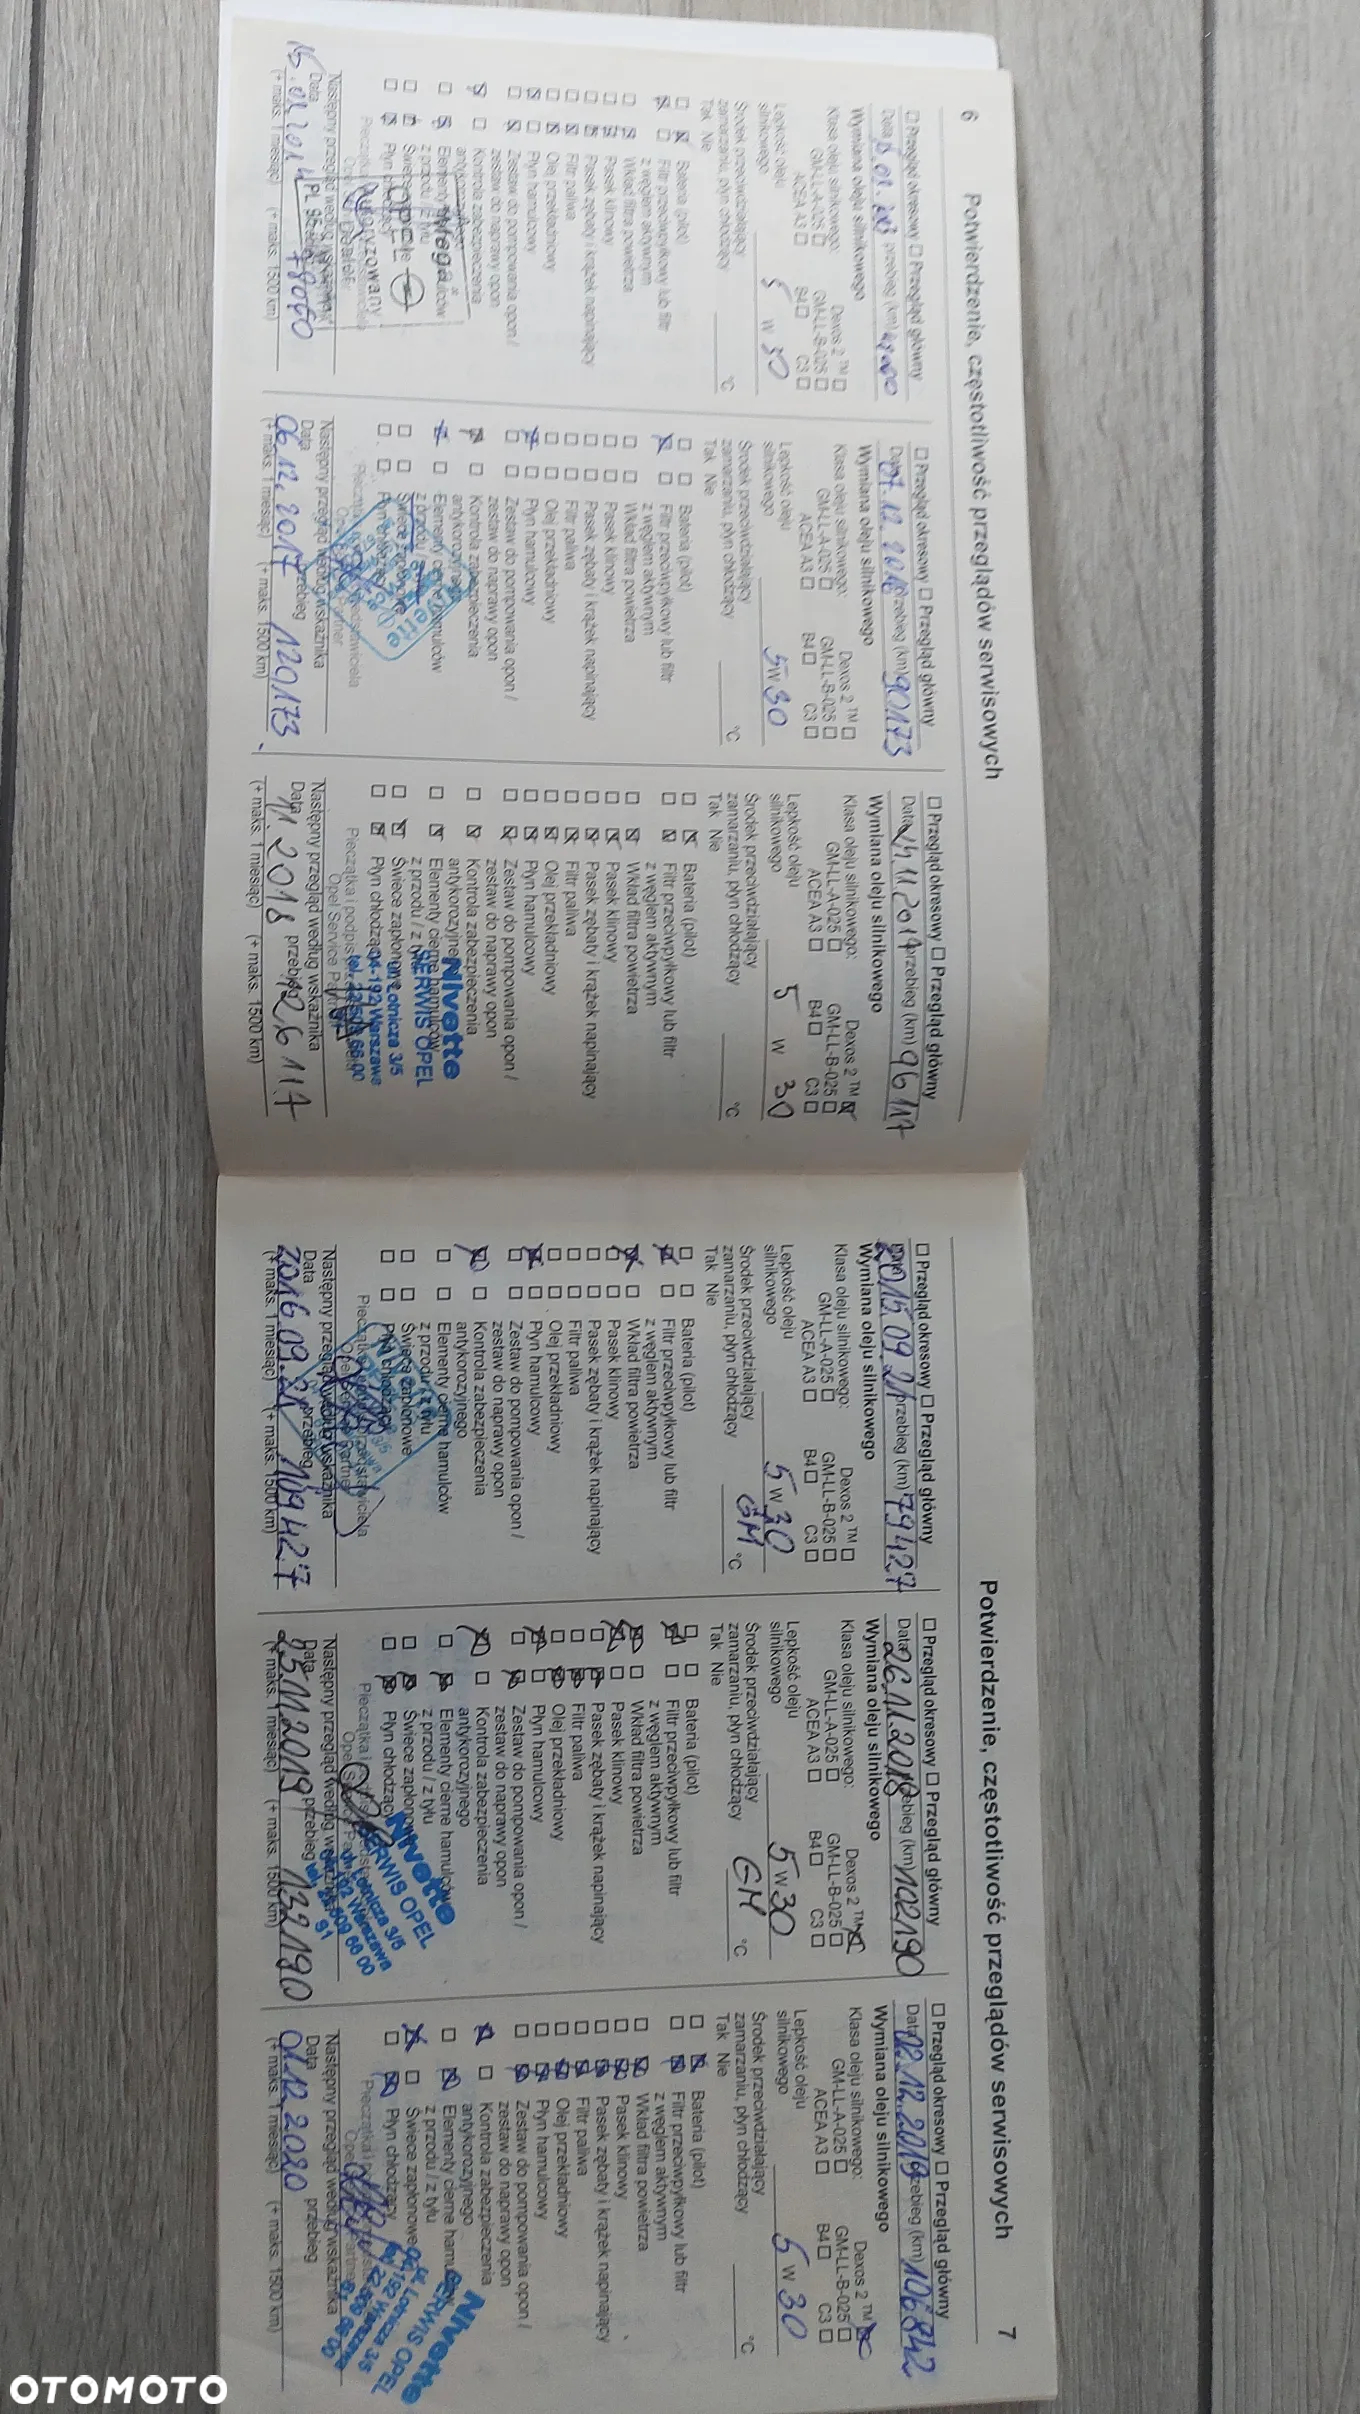 6
Potwierdzenie, częstotliwość przeglądów serwisowych
☐ Przegląd okresowy ☐ Przegląd główny
Data przebieg (km)
Wymiana oleju silnikowego
Klasa oleju silnikowego: Dexos 2 ™ ☐
GM-LL-A-025 ☐ GM-LL-B-025 ☐
ACEA A3 ☐ B4 ☐ C3 ☐
Lepkość oleju
silnikowego 5 W 30
Środek przeciwdziałający
zamarzaniu, płyn chłodzący °C
Tak Nie
☐ ☒ Bateria (pilot)
☒ ☐ Filtr przeciwpyłkowy lub filtr
z węglem aktywnym
☐ ☒ Wkład filtra powietrza
☐ ☒ Pasek klinowy
☐ ☒ Pasek zębaty i krążek napinający
☐ ☒ Filtr paliwa
☐ ☒ Olej przekładniowy
☒ ☐ Płyn hamulcowy
☐ ☒ Zestaw do pompowania opon /
zestaw do naprawy opon
☒ ☐ Kontrola zabezpieczenia
antykorozyjnego
☐ ☒ Elementy
z przodu / z tyłu
☐ ☒
☐ ☒ Płyn
Autoryzowany
Dealer
Następny przegląd według wskaźnika
Data
(+ maks. 1 miesiąc) (+ maks. 1500 km)
☐ Przegląd okresowy ☐ Przegląd główny
Data 07.12.2016 przebieg (km) 90173
Wymiana oleju silnikowego
Klasa oleju silnikowego: Dexos 2 ™ ☐
GM-LL-A-025 ☐ GM-LL-B-025 ☐
ACEA A3 ☐ B4 ☐ C3 ☐
Lepkość oleju
silnikowego 5 W 30
Środek przeciwdziałający
zamarzaniu, płyn chłodzący °C
Tak Nie
☐ ☐ Bateria (pilot)
☒ ☐ Filtr przeciwpyłkowy lub filtr
z węglem aktywnym
☐ ☐ Wkład filtra powietrza
☐ ☐ Pasek klinowy
☐ ☐ Pasek zębaty i krążek napinający
☐ ☐ Filtr paliwa
☐ ☐ Olej przekładniowy
☒ ☐ Płyn hamulcowy
☐ ☐ Zestaw do pompowania opon /
zestaw do naprawy opon
☒ ☐ Kontrola zabezpieczenia
antykorozyjnego
☒ ☐ Elementy cierne hamulców
z przodu / z tyłu
☐ ☐ Świece zapłonowe
☐ ☐ Płyn chłodzący
Następny przegląd według wskaźnika
Data przebieg
06.12.2017 120173
(+ maks. 1 miesiąc) (+ maks. 1500 km)
☐ Przegląd okresowy ☐ Przegląd główny
Data 24.11.2017 przebieg (km) 96117
Wymiana oleju silnikowego
Klasa oleju silnikowego: Dexos 2 ™ ☒
GM-LL-A-025 ☐ GM-LL-B-025 ☐
ACEA A3 ☐ B4 ☐ C3 ☐
Lepkość oleju
silnikowego 5 W 30
Środek przeciwdziałający
zamarzaniu, płyn chłodzący °C
Tak Nie
☐ ☒ Bateria (pilot)
☐ ☒ Filtr przeciwpyłkowy lub filtr
z węglem aktywnym
☐ ☒ Wkład filtra powietrza
☐ ☒ Pasek klinowy
☐ ☒ Pasek zębaty i krążek napinający
☐ ☒ Filtr paliwa
☐ ☒ Olej przekładniowy
☐ ☒ Płyn hamulcowy
☐ ☒ Zestaw do pompowania opon /
zestaw do naprawy opon
☐ ☒ Kontrola zabezpieczenia
antykorozyjnego
☐ ☒ Elementy cierne hamulców
z przodu / z tyłu
☐ ☒ Świece zapłonowe
☐ ☒ Płyn chłodzący
Nivette
SERWIS OPEL
ul. Lotnicza 3/5
04-192 Warszawa
Pieczątka i podpis
Opel Service Partner
Następny przegląd według wskaźnika
Data 11 2018 przebieg 126117
(+ maks. 1 miesiąc) (+ maks. 1500 km)
Potwierdzenie, częstotliwość przeglądów serwisowych
7
☐ Przegląd okresowy ☐ Przegląd główny
2015.09.21 przebieg (km) 79427
Wymiana oleju silnikowego
Klasa oleju silnikowego: Dexos 2 ™ ☐
GM-LL-A-025 ☐ GM-LL-B-025 ☐
ACEA A3 ☐ B4 ☐ C3 ☐
Lepkość oleju
silnikowego 5 W 30
Środek przeciwdziałający
zamarzaniu, płyn chłodzący GM °C
Tak Nie
☐ ☐ Bateria (pilot)
☒ ☐ Filtr przeciwpyłkowy lub filtr
z węglem aktywnym
☒ ☐ Wkład filtra powietrza
☐ ☐ Pasek klinowy
☐ ☐ Pasek zębaty i krążek napinający
☐ ☐ Filtr paliwa
☐ ☐ Olej przekładniowy
☒ ☐ Płyn hamulcowy
☐ ☐ Zestaw do pompowania opon /
zestaw do naprawy opon
☒ ☐ Kontrola zabezpieczenia
antykorozyjnego
☐ ☐ Elementy cierne hamulców
z przodu / z tyłu
☐ ☐ Świece zapłonowe
☐ ☐ Płyn chłodzący
Następny przegląd według wskaźnika
Data przebieg
2016.09.21 109427
(+ maks. 1 miesiąc) (+ maks. 1500 km)
☐ Przegląd okresowy ☐ Przegląd główny
Data 26.11.2018 przebieg (km) 102190
Wymiana oleju silnikowego
Klasa oleju silnikowego: Dexos 2 ™ ☒
GM-LL-A-025 ☐ GM-LL-B-025 ☐
ACEA A3 ☐ B4 ☐ C3 ☐
Lepkość oleju
silnikowego 5 W 30
Środek przeciwdziałający
zamarzaniu, płyn chłodzący GM °C
Tak Nie
☐ ☐ Bateria (pilot)
☒ ☐ Filtr przeciwpyłkowy lub filtr
z węglem aktywnym
☒ ☐ Wkład filtra powietrza
☒ ☐ Pasek klinowy
☐ ☒ Pasek zębaty i krążek napinający
☐ ☒ Filtr paliwa
☐ ☒ Olej przekładniowy
☒ ☐ Płyn hamulcowy
☐ ☒ Zestaw do pompowania opon /
zestaw do naprawy opon
☒ ☐ Kontrola zabezpieczenia
antykorozyjnego
☐ ☒ Elementy cierne hamulców
z przodu / z tyłu
☐ ☒ Świece zapłonowe
☐ ☒ Płyn chłodzący
Nivette
SERWIS OPEL
ul. Lotnicza 3/5
Następny przegląd według wskaźnika
Data przebieg
25.11.2019 132190
(+ maks. 1 miesiąc) (+ maks. 1500 km)
☐ Przegląd okresowy ☐ Przegląd główny
Data 02.12.2019 przebieg (km) 106842
Wymiana oleju silnikowego
Klasa oleju silnikowego: Dexos 2 ™ ☒
GM-LL-A-025 ☐ GM-LL-B-025 ☐
ACEA A3 ☐ B4 ☐ C3 ☐
Lepkość oleju
silnikowego 5 W 30
Środek przeciwdziałający
zamarzaniu, płyn chłodzący °C
Tak Nie
☐ ☒ Bateria (pilot)
☐ ☒ Filtr przeciwpyłkowy lub filtr
z węglem aktywnym
☐ ☒ Wkład filtra powietrza
☐ ☒ Pasek klinowy
☐ ☒ Pasek zębaty i krążek napinający
☐ ☒ Filtr paliwa
☐ ☒ Olej przekładniowy
☐ ☒ Płyn hamulcowy
☐ ☒ Zestaw do pompowania opon /
zestaw do naprawy opon
☒ ☐ Kontrola zabezpieczenia
antykorozyjnego
☐ ☒ Elementy cierne hamulców
z przodu / z tyłu
☒ ☐ Świece zapłonowe
☐ ☒ Płyn chłodzący
Nivette
SERWIS OPEL
ul. Lotnicza 3/5
Następny przegląd według wskaźnika
Data przebieg
01.12.2020
(+ maks. 1 miesiąc) (+ maks. 1500 km)
OTOMOTO